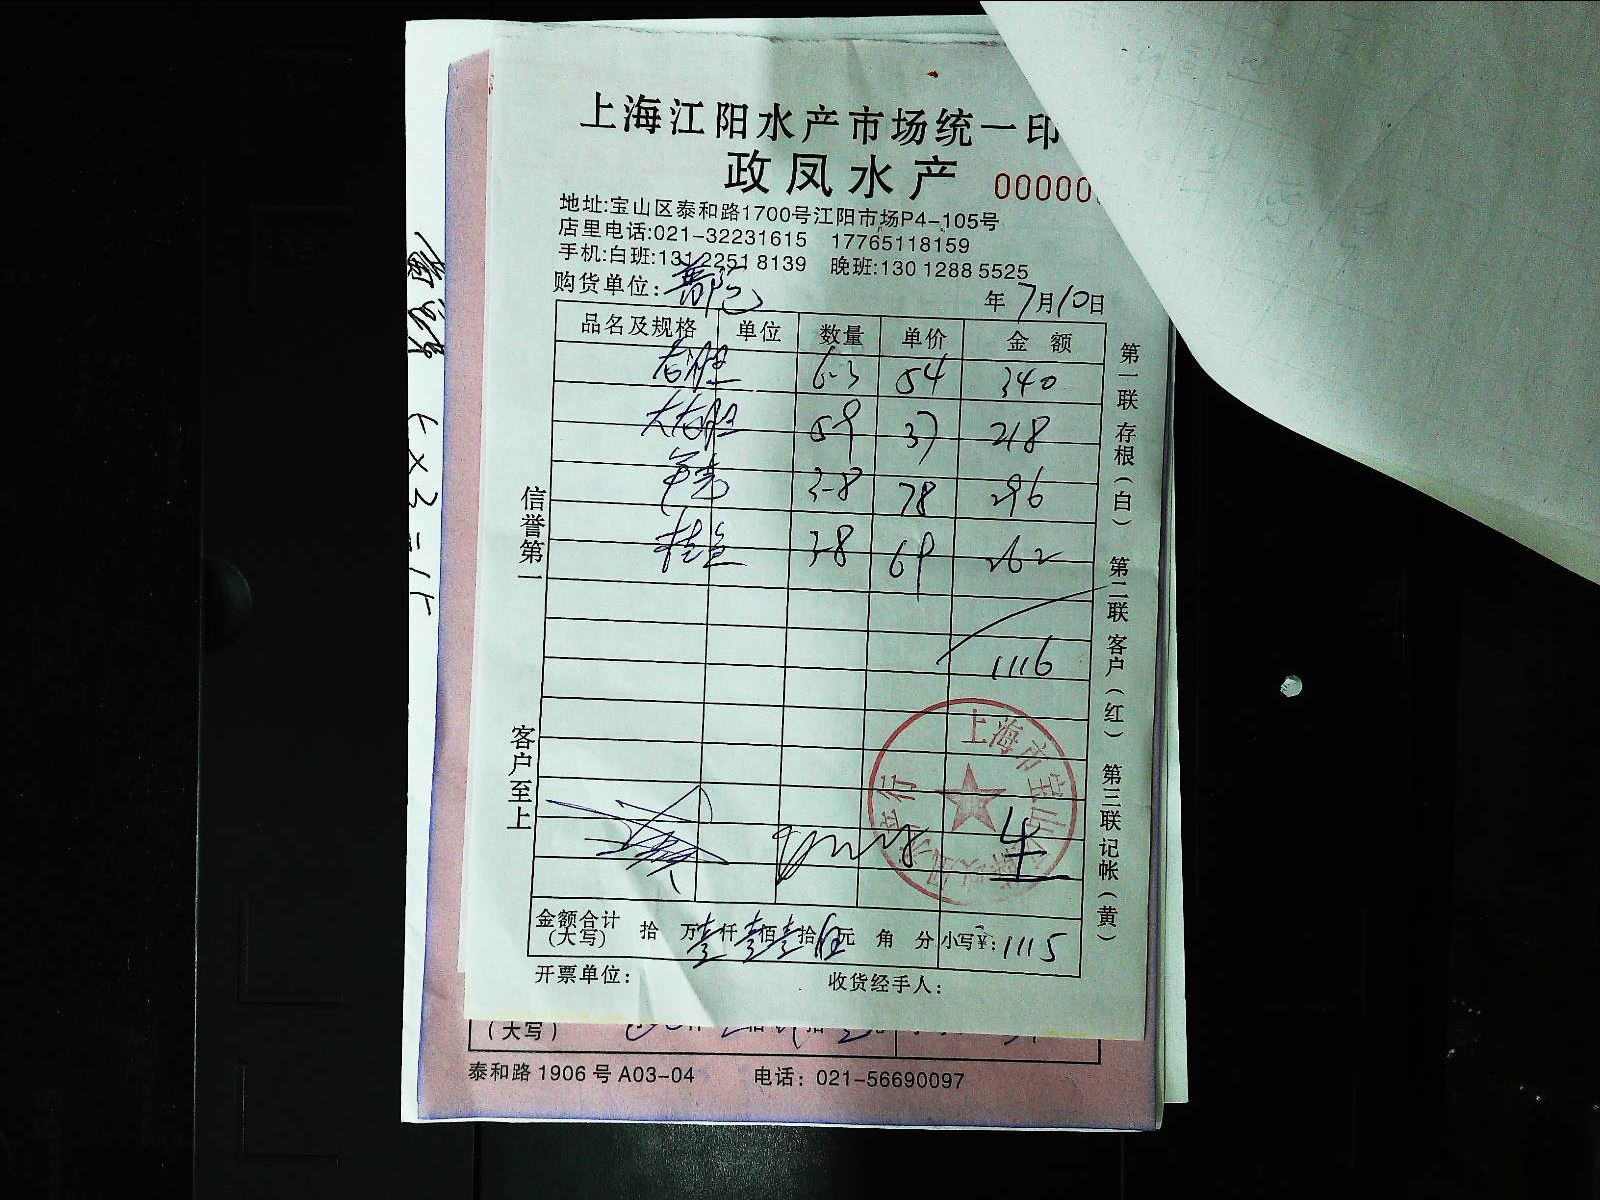 上海江阳水产市场统一印
政凤水产 00000
地址:宝山区泰和路1700号江阳市场P4-105号
店里电话:021-32231615 17765118159
手机:白班:131 2251 8139 晚班:130 1288 5525
购货单位: 普陀
年 7月10日
品名及规格 单位 数量 单价 金额
6-3 54 340
5-9 37 218
3-8 78 296
桂鱼 3-8 69 262
1116
信誉第一
客户至上
第一联存根(白) 第二联客户(红) 第三联记帐(黄)
上海市宝山
金额合计(大写) 拾 万壹仟壹佰壹拾伍元 角 分 小写¥:1115
开票单位: 收货经手人:
(大写)
泰和路 1906 号 A03-04 电话: 021-56690097